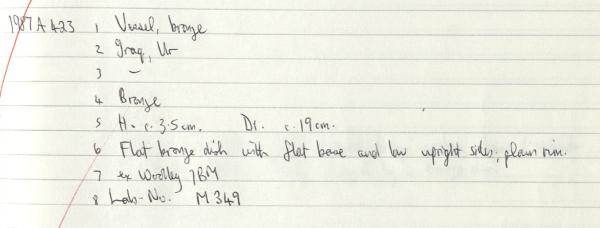 1987A423 1 Vessel, bronze
2 Iraq, Ur
3 –
4 Bronze
5 H. c. 3.5cm. Di. c. 19cm.
6 Flat bronze dish with flat base and low upright sides, plain rim.
7 ex Woolley / BM
8 Lab-No. M349